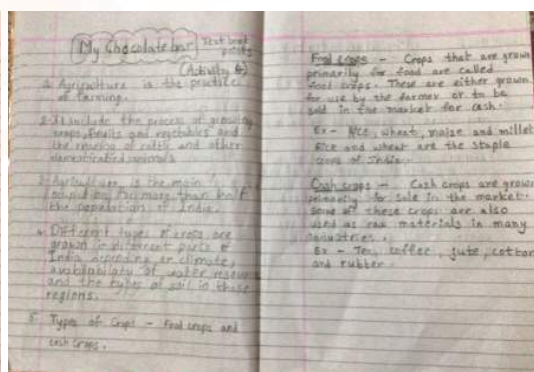 My Chocolate bar Text book points
(Activity 6)
1. Agriculture is the practice
of farming.
2. It include the process of growing
crops, fruits and vegetables and
the rearing of cattle and other
domesticated animals.
3. Agriculture is the main
occupation for more than half
the population of India.
4. Different types of crops are
grown in different parts of
India depending on climate,
availability of water resource
and the types of soil in these
regions.
5. Types of Crops - Food crops and
cash crops.
Food crops - Crops that are grown
primarily for food are called
food crops. These are either grown
for use by the farmer or to be
sold in the market for cash.
Ex - Rice, wheat, maize and millet
Rice and wheat are the staple
crops of India.
Cash crops - Cash crops are grown
primarily for sale in the market.
Some of these crops are also
used as raw materials in many
industries.
Ex - Tea, coffee, jute, cotton
and rubber.